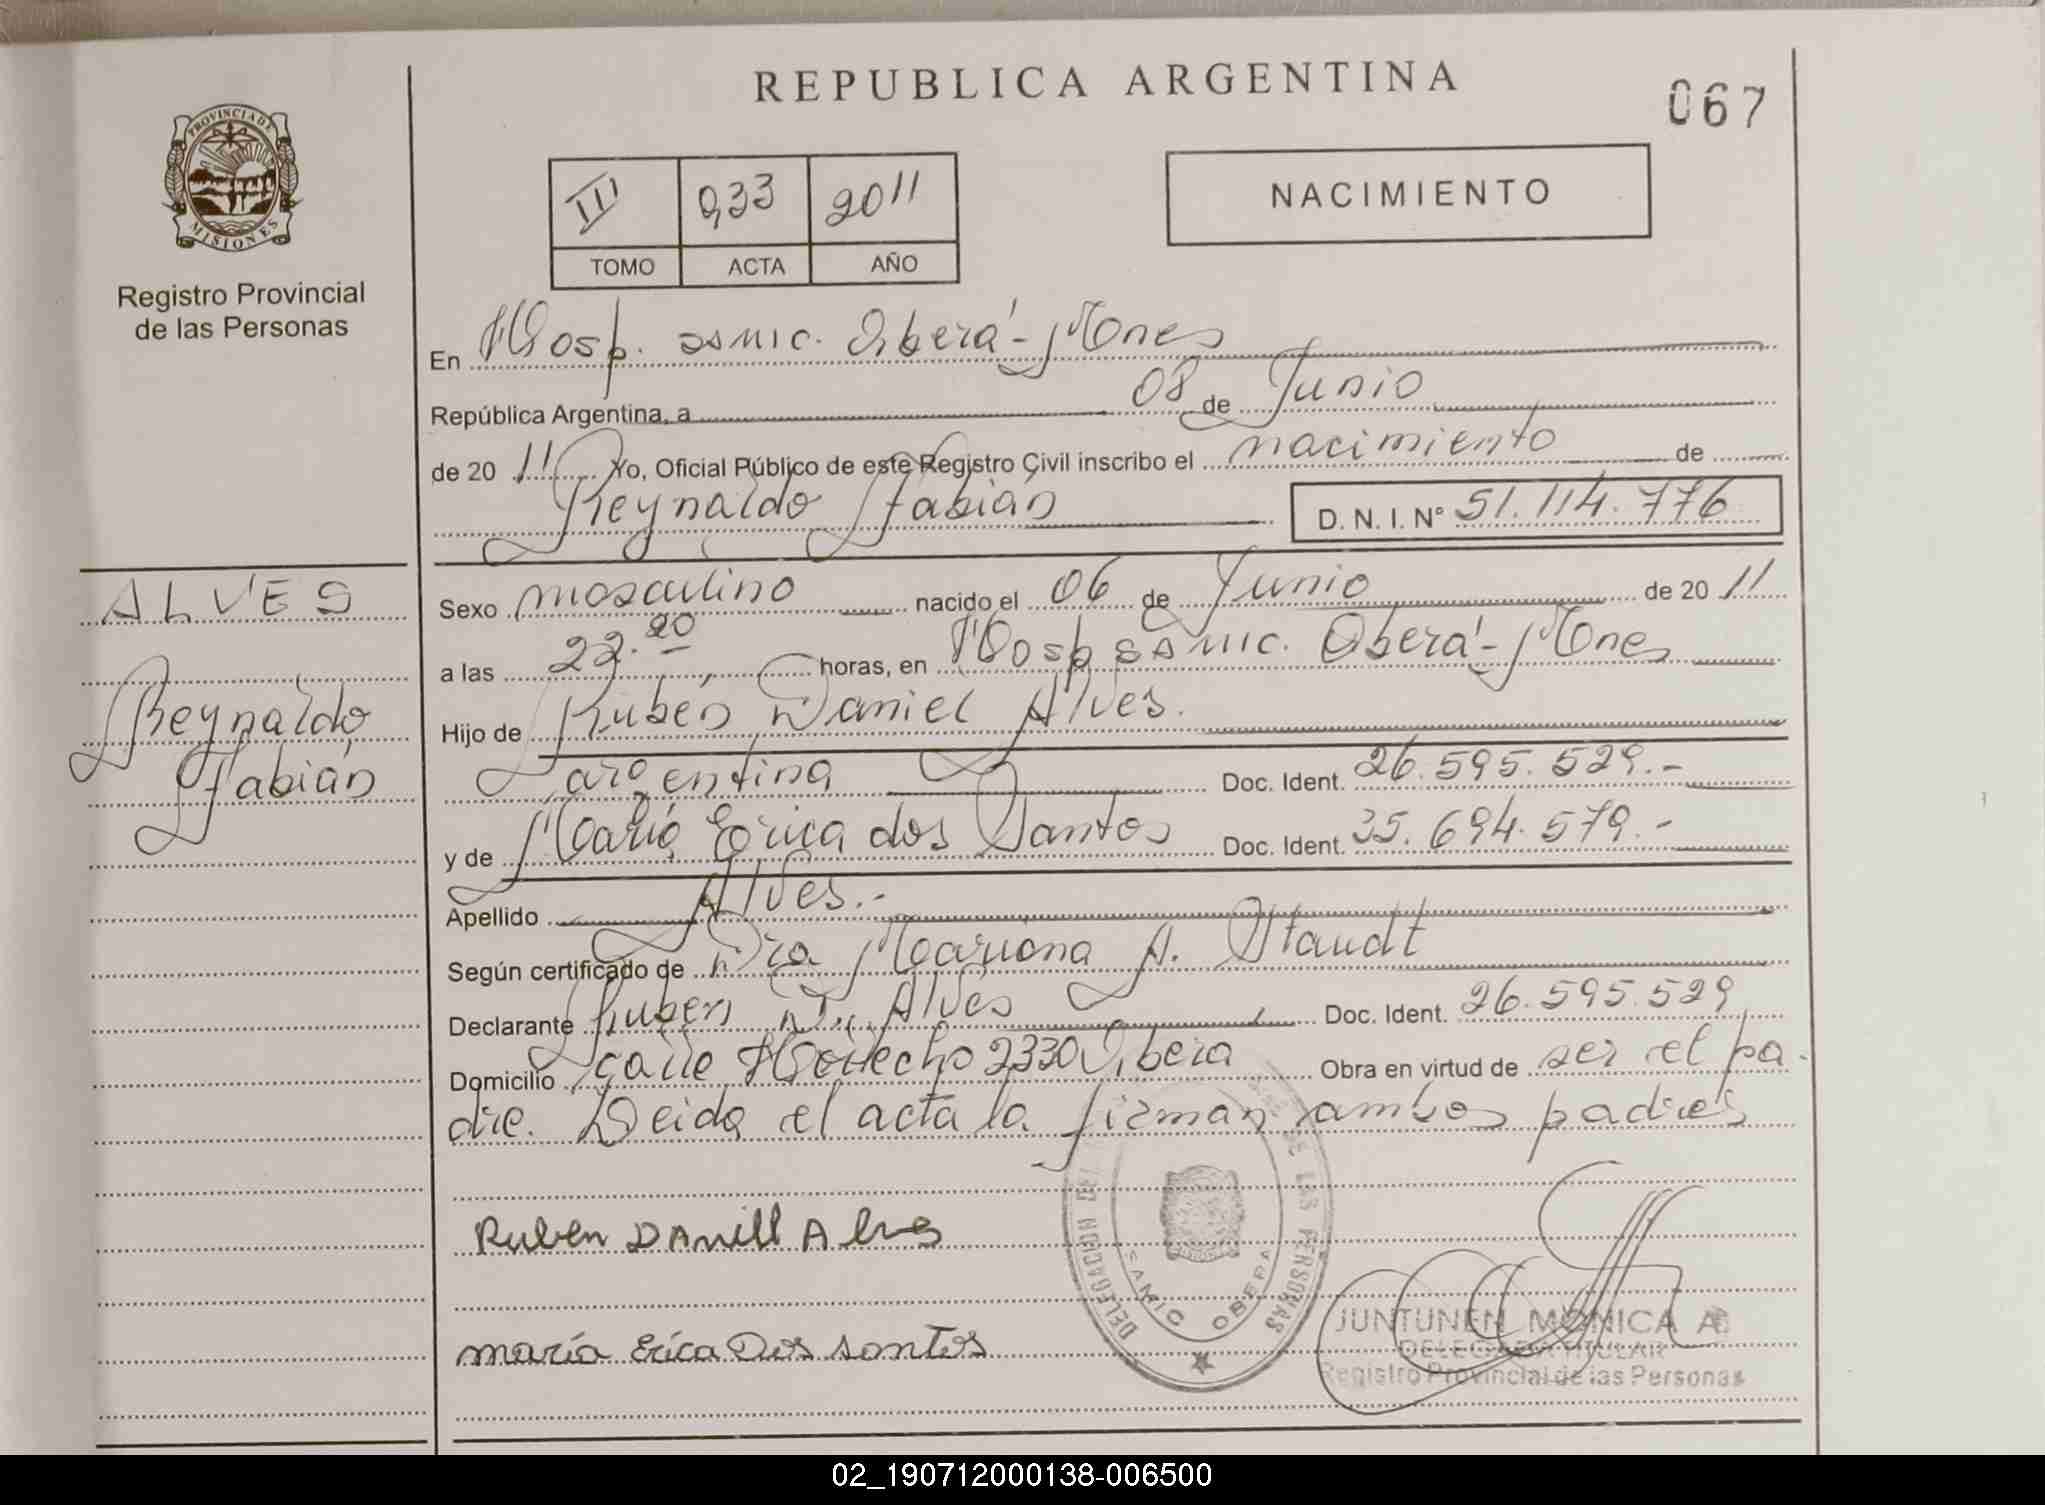 REPUBLICA ARGENTINA
067
PROVINCIA DE
MISIONES
Registro Provincial
de las Personas
III 033 2011
TOMO ACTA AÑO
NACIMIENTO
En Hosp. samic. Oberá - Mones
República Argentina, a 08 de Junio
de 20 11 Yo, Oficial Público de este Registro Civil inscribo el nacimiento de
Reynaldo Fabián D. N. I. Nº 51.114.776
ALVES
Reynaldo
Fabián
Sexo masculino nacido el 06 de Junio de 20 11
a las 22.20 horas, en Hosp samic. Oberá - Mones
Hijo de Rubén Daniel Alves.
argentina Doc. Ident. 26.595.529.-
y de María Erica dos Santos Doc. Ident. 35.694.579.-
Apellido Alves.-
Según certificado de Dra Mariana A. Staudt
Declarante Ruben D. Alves Doc. Ident. 26.595.529
Domicilio calle 2330 Obera Obra en virtud de ser el pa-
dre. Leida el acta la firman ambos padres
Ruben DAniel Alves
maría Erica Dos santos
DELEGACION DE LAS PERSONAS
SAMIC OBERA
JUNTUNEN MONICA A
DELEGADA TITULAR
Registro Provincial de las Personas
02_190712000138-006500